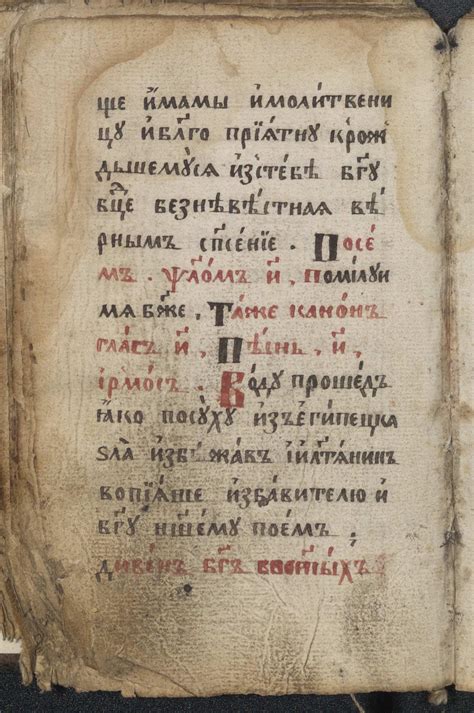 ще и҆́мамы и҆моли́твени
цу и҆бл҃го прїѧ́тну крожⷣ
дшемꙋсѧ и҆зтебѐ бг҃у
бц҃е безневѣ́стная вѣ́
рнымъ сп҃се́нїе . По се́
мъ . ѱло́мъ н҃ , поми́луи
мѧ бж҃е , Та́же кано́нъ
гла́съ и҃ , Пѣ́снь , а҃ ,
і҆рмо́съ . Во́ду проше́дъ
ꙗ҆́ко посу́ху и҆зъе҆ги́пецка
ѕла̀ и҆збѣжа́въ і҆и҃лтѧнинъ
вопїѧ́ше и҆зба́вителю и҆
бг҃у на́шему пое́мъ .
ди́венъ бг҃ъ